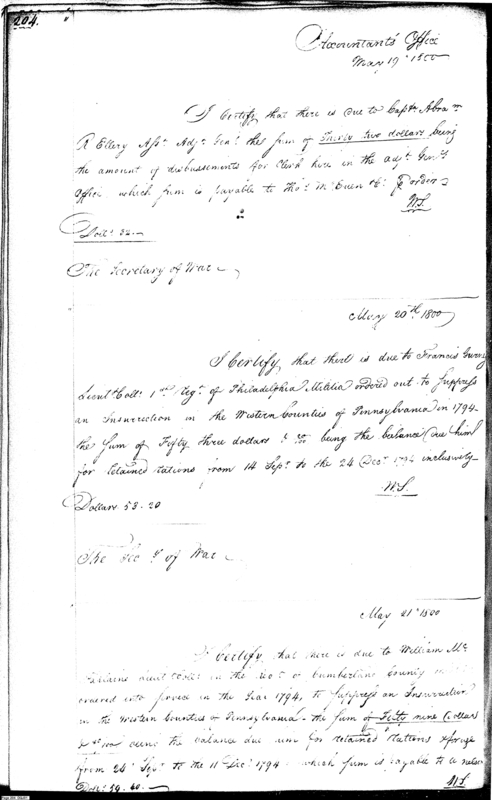 204.
Accountant's Office
May 19th 1800
I Certify that there is due to Captn. Abram
R Ellery Asst. Adjt. Genl. the sum of Thirty two dollars being
the amount of disbursements for Clerk hire in the adjt. Genls.
Office which sum is payable to Thos. McEuen & Co. or order
W.S.
Dolls. 32.
The Secretary of War
May 20th. 1800
I Certify, that there is due to Francis Gurney
Lieut. Colo. 1st Regt. of Philadelphia Militia ordered out to Suppress
an Insurrection in the Western Counties of Pennsylvania in 1794
the Sum of Fifty three dollars & 20/100 being the balance due him
for retained rations from 14 Sept. to the 24 Decr. 1794 inclusively
W.S.
Dollars 53.20
The Secy. of War
May 21st 1800
I Certify, that there is due to William Mc
Lieut Colo. in the Regt. of Cumberland County
ordered into service in the Year 1794, to Suppress an Insurrection
in the Western Counties of Pennsylvania the Sum of Fifty nine dollars
& 40/100 being the balance due him for retained rations & forage
from 24 Sept. to the 11 Decr. 1794 which sum is payable to
W.S.
Dolls. 59.40